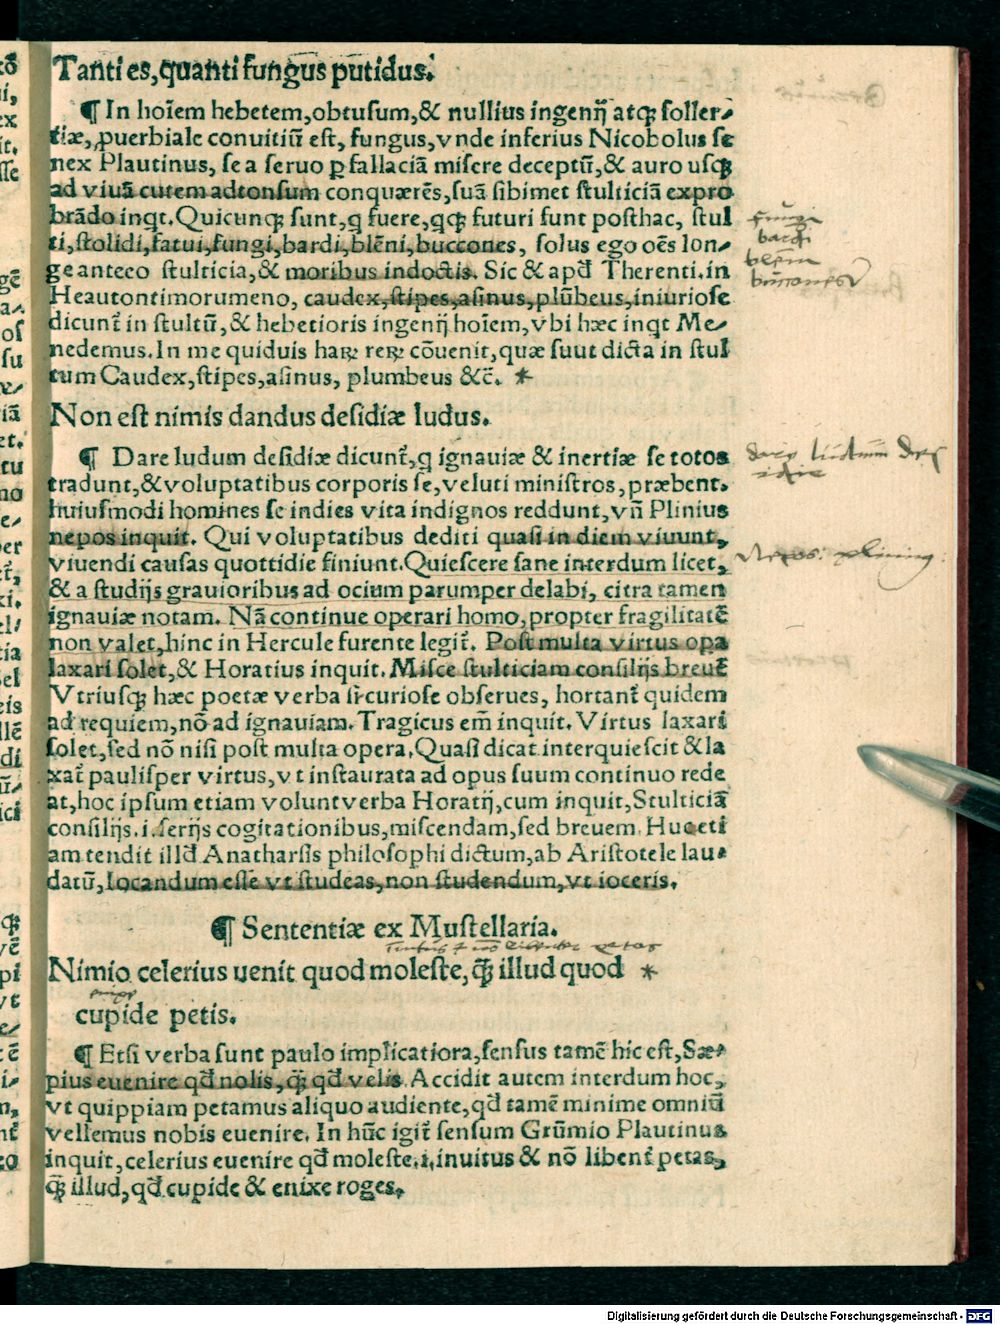 Tanti es, quanti fungus putidus.
¶ In hoīem hebetem, obtusum, & nullius ingenij atq; soller⸗
tiæ, ꝓuerbiale conuitiū est, fungus, vnde inferius Nicobolus se
nex Plautinus, se a seruo ꝑ fallaciā misere deceptū, & auro usq;
ad viuā cutem adtonsum conquærēs, suā sibimet stulticiā expro
brādo inqt. Quicunq; sunt, q fuere, qq; futuri sunt posthac, stul
ti, stolidi, fatui, fungi, bardi, blēni, buccones, solus ego oēs lon⸗
ge anteeo stulticia, & moribus indoctis. Sic & apđ Therenti. in
Heautontimorumeno, caudex, stipes, asinus, plūbeus, iniuriose
dicunt̄ in stultū, & hebetioris ingenij hoīem, vbi hæc inqt Me⸗
nedemus. In me quiduis haꝝ reꝝ cōuenit, quæ suut dicta in stul
tum Caudex, stipes, asinus, plumbeus &c̄. *
fungi
bardi
blēni
buccones
Non est nimis dandus desidiæ ludus.
¶ Dare ludum desidiæ dicunt̄, q ignauiæ & inertiæ se totos
tradunt, & voluptatibus corporis se, veluti ministros, præbent.
huiusmodi homines se indies vita indignos reddunt, vñ Plinius
nepos inquit. Qui voluptatibus dediti quasi in diem viuunt,
viuendi causas quottidie finiunt. Quiescere sane interdum licet,
& a studijs grauioribus ad ocium parumper delabi, citra tamen
ignauiæ notam. Nā continue operari homo, propter fragilitatē
non valet, hinc in Hercule furente legit̄. Post multa virtus opa
laxari solet, & Horatius inquit. Misce stulticiam consilijs breuē
Vtriusq; hæc poetæ verba si curiose obserues, hortant̄ quidem
ad requiem, nō ad ignauiam. Tragicus em̄ inquit. Virtus laxari
solet, sed nō nisi post multa opera. Quasi dicat interquiescit & la
xat̄ paulisper virtus, vt instaurata ad opus suum continuo rede
at, hoc ipsum etiam volunt verba Horatij, cum inquit, Stulticiā
consilijs. i. serijs cogitationibus, miscendam, sed breuem. Huc eti
am tendit illđ Anatharsis philosophi dictum, ab Aristotele lau⸗
datū, Iocandum esse vt studeas, non studendum, vt ioceris.
¶ Sententiæ ex Mustellaria.
Nimio celerius uenit quod moleste, q̄; illud quod *
cupide petis.
¶ Etsi verba sunt paulo implicatiora, sensus tamē hic est, Sæ⸗
pius euenire qđ nolis, q̄; qđ velis. Accidit autem interdum hoc,
vt quippiam petamus aliquo audiente, qđ tamē minime omniū
vellemus nobis euenire. In hūc igit̄ sensum Grūmio Plautinus
inquit, celerius euenire qđ moleste. i, inuitus & nō libent̄ petas,
q̄; illud, qđ cupide & enixe roges.
Digitalisierung gefördert durch die Deutsche Forschungsgemeinschaft - DFG